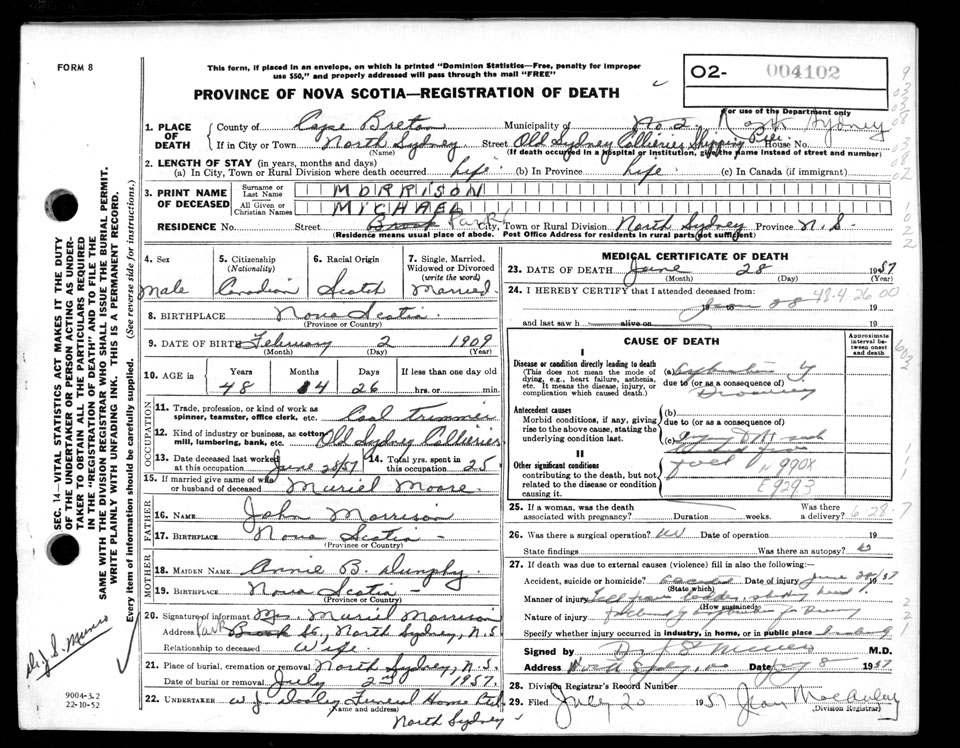 FORM 8
This form, if placed in an envelope, on which is printed "Dominion Statistics—Free, penalty for improper
use $50," and properly addressed will pass through the mail "FREE"
O2- 004102
PROVINCE OF NOVA SCOTIA—REGISTRATION OF DEATH
For use of the Department only
1. PLACE OF DEATH
County of Cape Breton Municipality of No. 2 North Sydney
If in City or Town North Sydney Street Old Sydney Collieries Shipping Pier House No.
(Name) (If death occurred in a hospital or institution, give the name instead of street and number)
2. LENGTH OF STAY (in years, months and days)
(a) In City, Town or Rural Division where death occurred Life (b) In Province Life (c) In Canada (if immigrant)
3. PRINT NAME OF DECEASED
Surname or Last Name MORRISON
All Given or Christian Names MICHAEL
RESIDENCE No. Street Brook Park City, Town or Rural Division North Sydney Province N.S-
(Residence means usual place of abode. Post Office Address for residents in rural parts not sufficient)
4. Sex
Male
5. Citizenship
(Nationality)
Canadian
6. Racial Origin
Scotch
7. Single, Married,
Widowed or Divorced
(write the word)
Married
8. BIRTHPLACE Nova Scotia
(Province or Country)
9. DATE OF BIRTH February 2 1909
(Month) (Day) (Year)
10. AGE in
Years Months Days If less than one day old
48 4 26 hrs. or min.
OCCUPATION
11. Trade, profession, or kind of work as
spinner, teamster, office clerk, etc. Coal Trimmer
12. Kind of industry or business, as cotton
mill, lumbering, bank, etc. Old Sydney Collieries
13. Date deceased last worked
at this occupation June 28/57
14. Total yrs. spent in
this occupation 25
15. If married give name of wife
or husband of deceased Muriel Moore
FATHER
16. Name John Morrison
17. Birthplace Nova Scotia -
(Province or Country)
MOTHER
18. Maiden Name Annie B. Dunphy
19. Birthplace Nova Scotia -
(Province or Country)
20. Signature of informant Mrs. Muriel Morrison
Address Park Brook St., North Sydney, N.S
Relationship to deceased Wife.
21. Place of burial, cremation or removal North Sydney, N.S.
Date of burial or removal July 2nd 1957.
22. UNDERTAKER W. J. Dooley Funeral Home Ltd.
(Name and address)
North Sydney
MEDICAL CERTIFICATE OF DEATH
23. DATE OF DEATH June 28 1957
(Month) (Day) (Year)
24. I HEREBY CERTIFY that I attended deceased from:
48-4-26 00
19 to 19
and last saw h alive on 19
CAUSE OF DEATH
Approximate interval between onset and death
I
Disease or condition directly leading to death
(This does not mean the mode of
dying, e.g., heart failure, asthenia,
etc. It means the disease, injury, or
complication which caused death.)
(a) Asphyxiation by
due to (or as a consequence of)
Drowning
Antecedent causes
Morbid conditions, if any, giving
rise to the above cause, stating the
underlying condition last.
(b)
due to (or as a consequence of)
(c)
II
Other significant conditions
contributing to the death, but not
related to the disease or condition
causing it.
N 990X
E 929.3
25. If a woman, was the death
associated with pregnancy? Duration weeks. Was there
a delivery?
6 28-7
26. Was there a surgical operation? no Date of operation 19
State findings Was there an autopsy?
27. If death was due to external causes (violence) fill in also the following:—
Accident, suicide or homicide? accident Date of injury June 28 1957
(State which)
Manner of injury Fell from ladder, striking head
(How sustained)
Nature of injury
Specify whether injury occurred in industry, in home, or in public place
Signed by Dr. J. S. Munro M.D.
Address North Sydney, NS Date July 8 1957
28. Division Registrar's Record Number
29. Filed July 20 1957 Jean MacAulay
(Division Registrar)
SEC. 14—VITAL STATISTICS ACT MAKES IT THE DUTY
OF THE UNDERTAKER OR PERSON ACTING AS UNDER-
TAKER TO OBTAIN ALL THE PARTICULARS REQUIRED
IN THE "REGISTRATION OF DEATH" AND TO FILE THE
SAME WITH THE DIVISION REGISTRAR WHO SHALL ISSUE THE BURIAL PERMIT.
WRITE PLAINLY WITH UNFADING INK. THIS IS A PERMANENT RECORD.
Every item of information should be carefully supplied. (See reverse side for instructions.)
Dr. J. S. Munro
9004-3.2
22-10-52